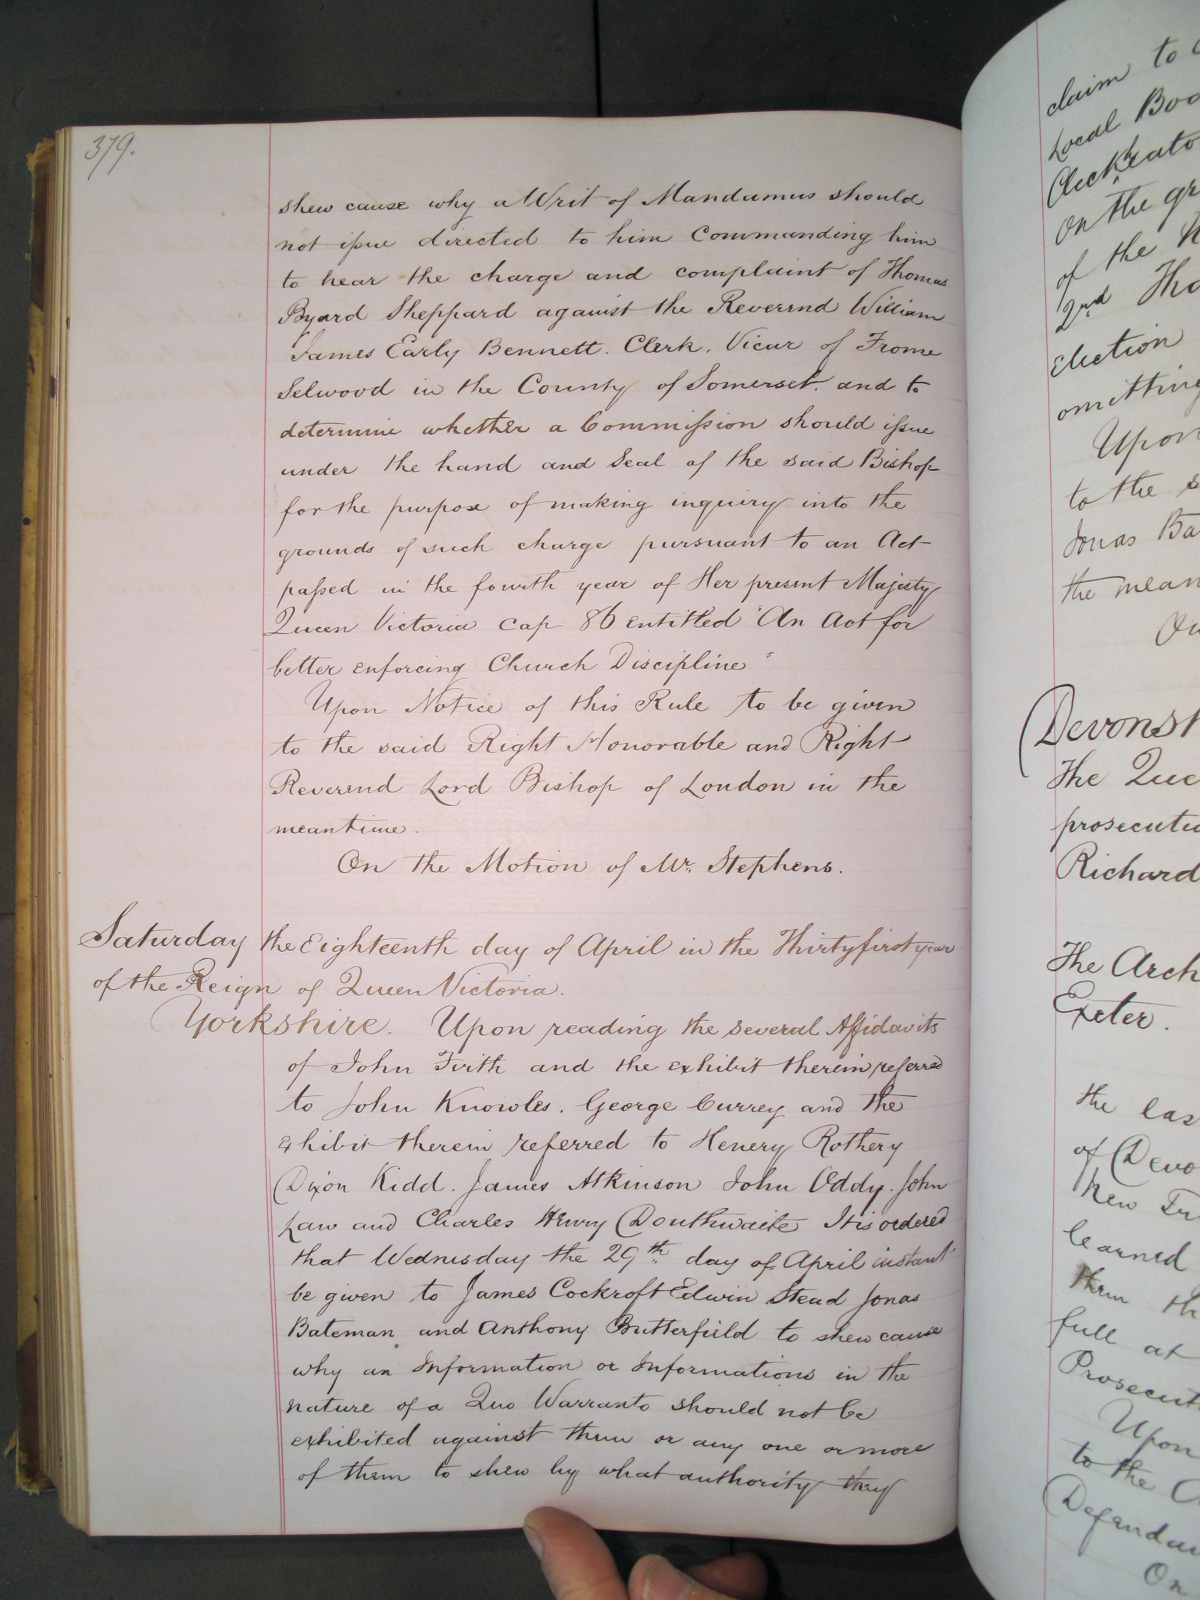 379.
shew cause why a Writ of Mandamus should
not issue directed to him Commanding him
to hear the charge and complaint of Thomas
Byard Sheppard against the Reverend William
James Early Bennett. Clerk. Vicar of Frome
Selwood in the County of Somerset. and to
determine whether a Commission should issue
under the hand and Seal of the said Bishop
for the purpose of making inquiry into the
grounds of such charge pursuant to an Act
passed in the fourth year of Her present Majesty
Queen Victoria cap 86 entitled "An Act for
better enforcing Church Discipline"
Upon Notice of this Rule to be given
to the said Right Honorable and Right
Reverend Lord Bishop of London in the
meantime.
On the Motion of Mr. Stephens.
Saturday the Eighteenth day of April in the Thirtyfirst year
of the Reign of Queen Victoria.
Yorkshire. Upon reading the several Affidavits
of John Firth and the exhibit therein referred
to John Knowles. George Currey and the
exhibit therein referred to Henery Rothery
Dixon Kidd. James Atkinson John Oddy. John
Law and Charles Henry Douthwaite It is ordered
that Wednesday the 29th day of April instant
be given to James Cockroft Edwin Stead Jonas
Bateman and Anthony Butterfield to shew cause
why an Information or Informations in the
nature of a Quo Warranto should not be
exhibited against them or any one or more
of them to shew by what authority they
claim to
Local
on the
of the
2nd
Election
omitting
Upon
to the
Jonas
the
Devonsh
The Que
prosecutio
Richard
The Arch
Exeter.
the las
of Devo
New
learned
them th
full at
Prosecut
Upon
to the
Defendan
On